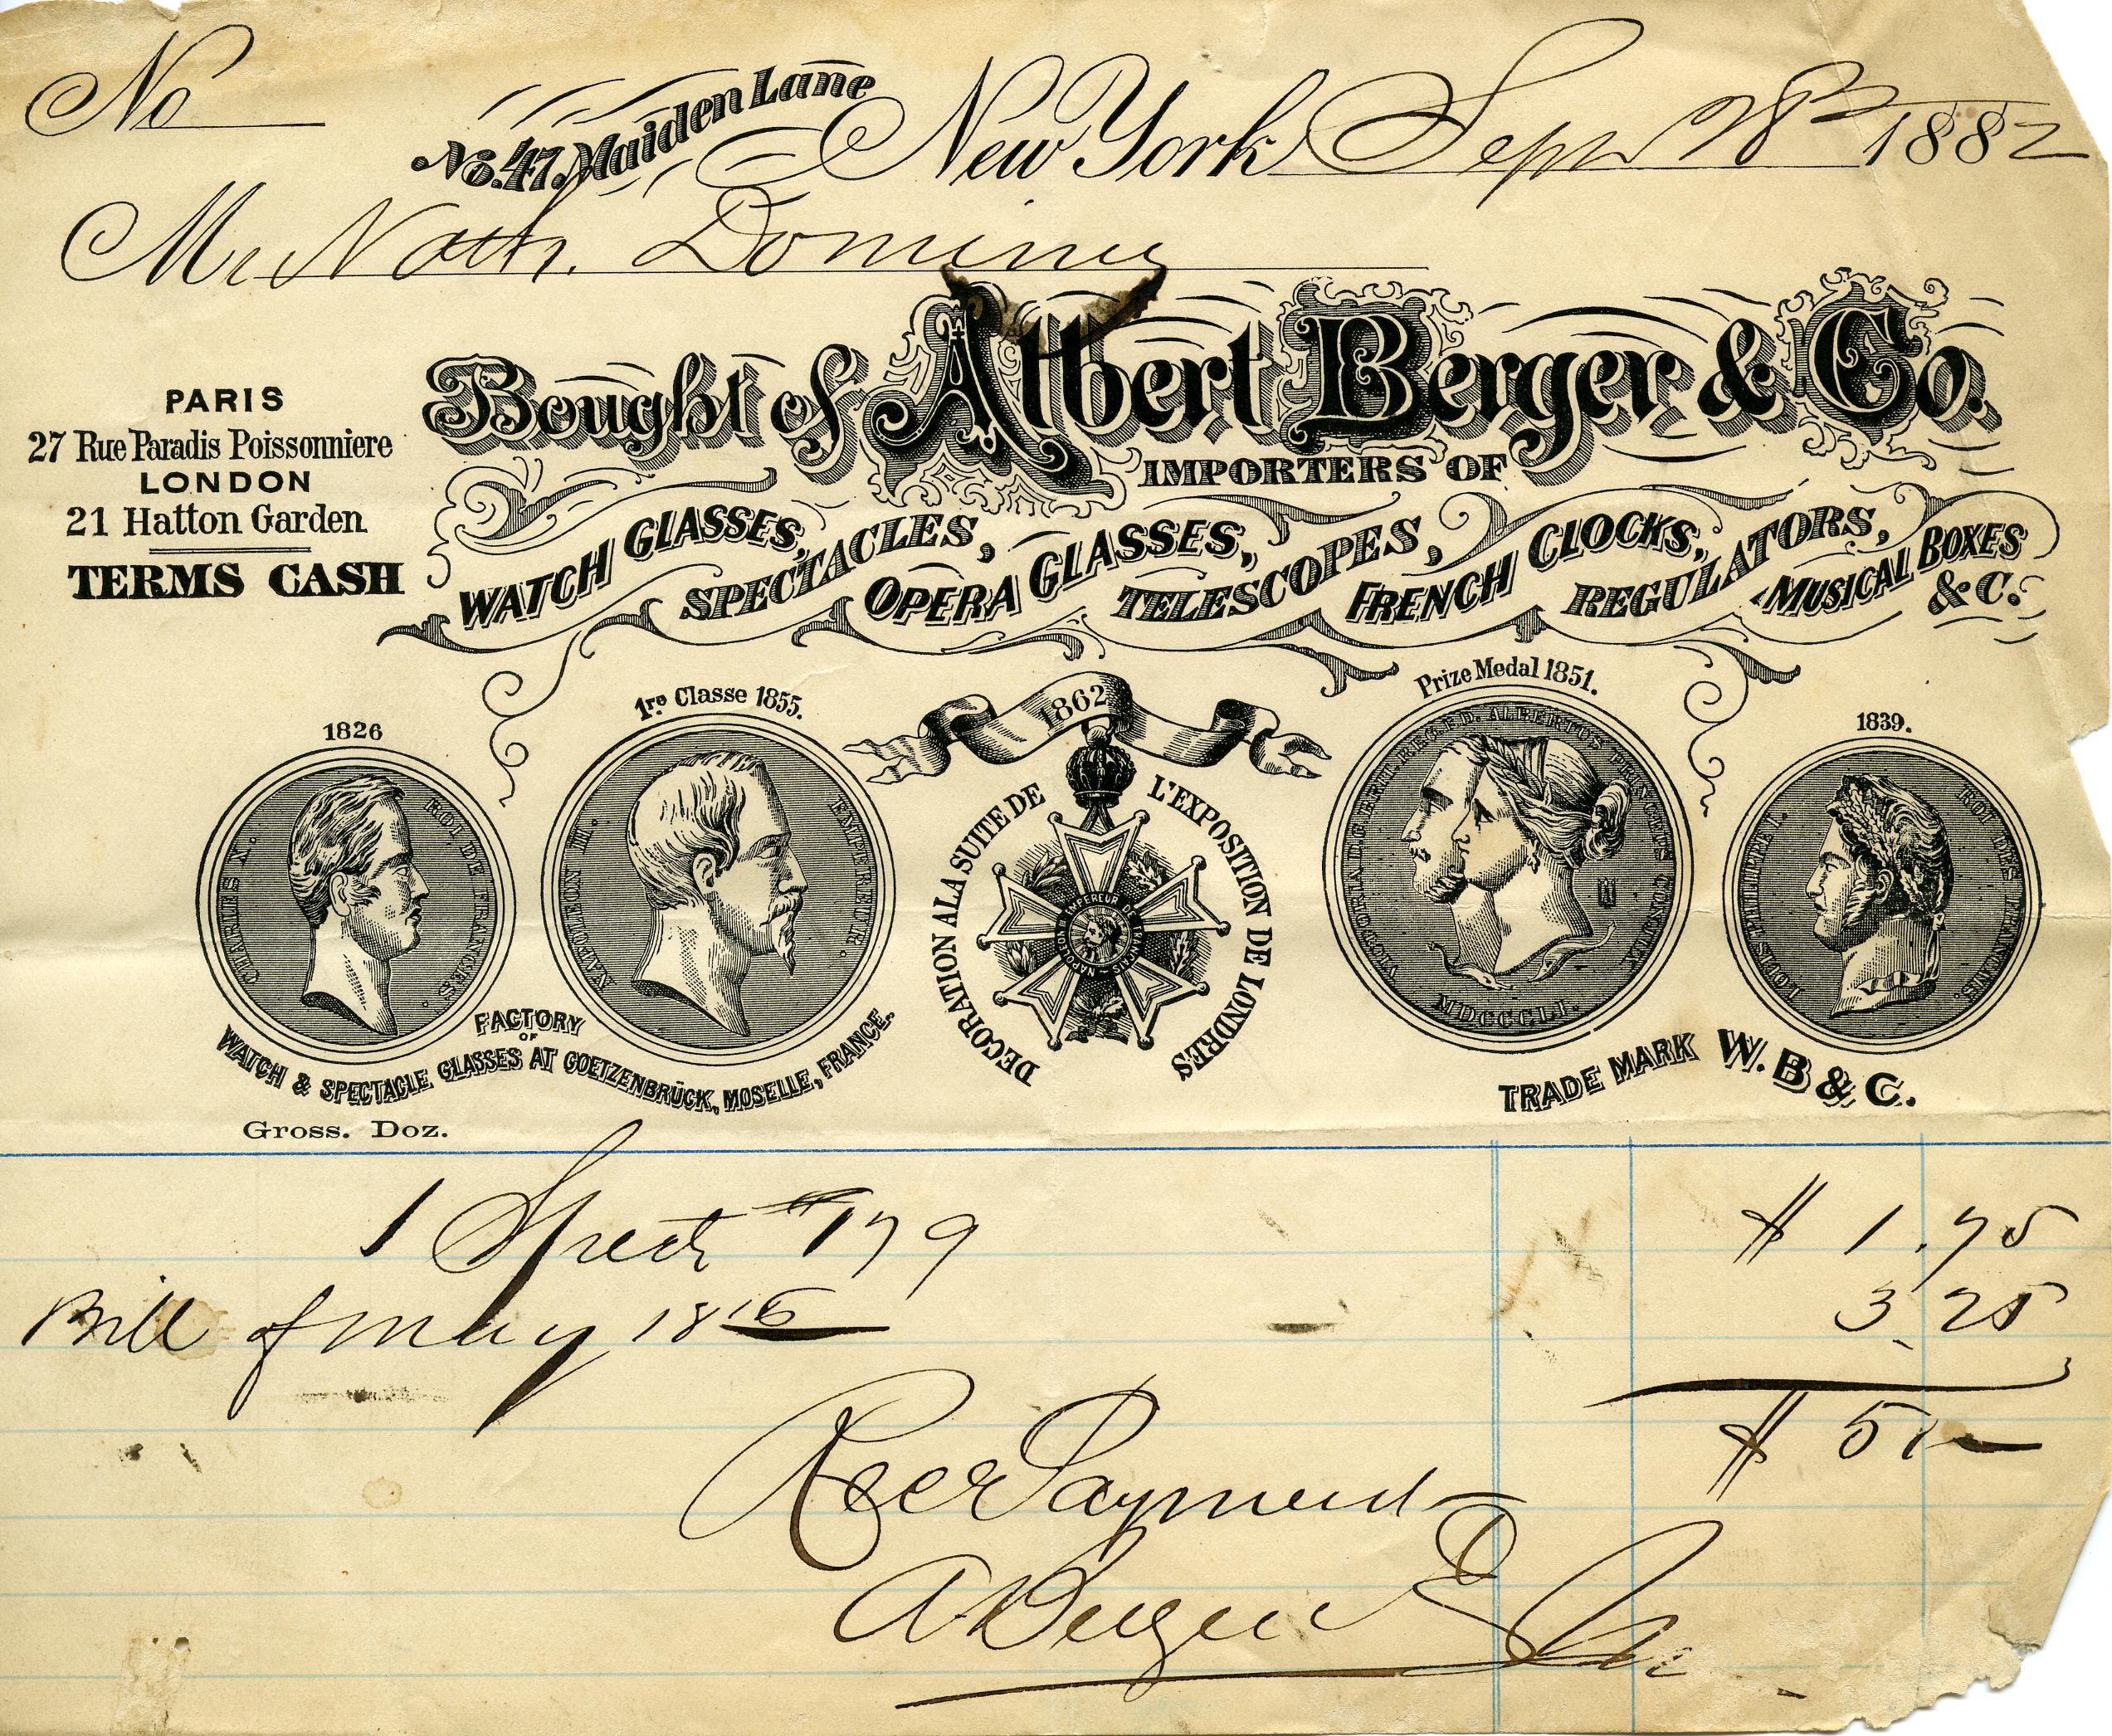 No
No. 47. Maiden Lane
New York Sept 28th 1882
Mr Nath. Dominy
Bought of Albert Berger & Co.
IMPORTERS OF
WATCH GLASSES, SPECTACLES, OPERA GLASSES, TELESCOPES, FRENCH CLOCKS, REGULATORS, MUSICAL BOXES &C.
PARIS
27 Rue Paradis Poissonniere
LONDON
21 Hatton Garden
TERMS CASH
1826
CHARLES X. ROI DE FRANCE.
1re Classe 1855.
NAPOLEON III. EMPEREUR.
1862
DECORATION A LA SUITE DE L'EXPOSITION DE LONDRES
NAPOLEON EMPEREUR DE FRANCAIS
Prize Medal 1851.
VICTORIA D.G. BRIT. REG. F.D. ALBERTUS PRINCEPS CONJUX
MDCCCLI.
1839.
LOUIS PHILIPPE I. ROI DES FRANCAIS.
FACTORY
OF
WATCH & SPECTACLE GLASSES AT GOETZENBRÜCK, MOSELLE, FRANCE.
TRADE MARK W. B & C.
Gross. Doz.
1 Spect #179 $ 1.75
Bill of May 18 3.25
$ 5
Rec Payment
A Berger & Co